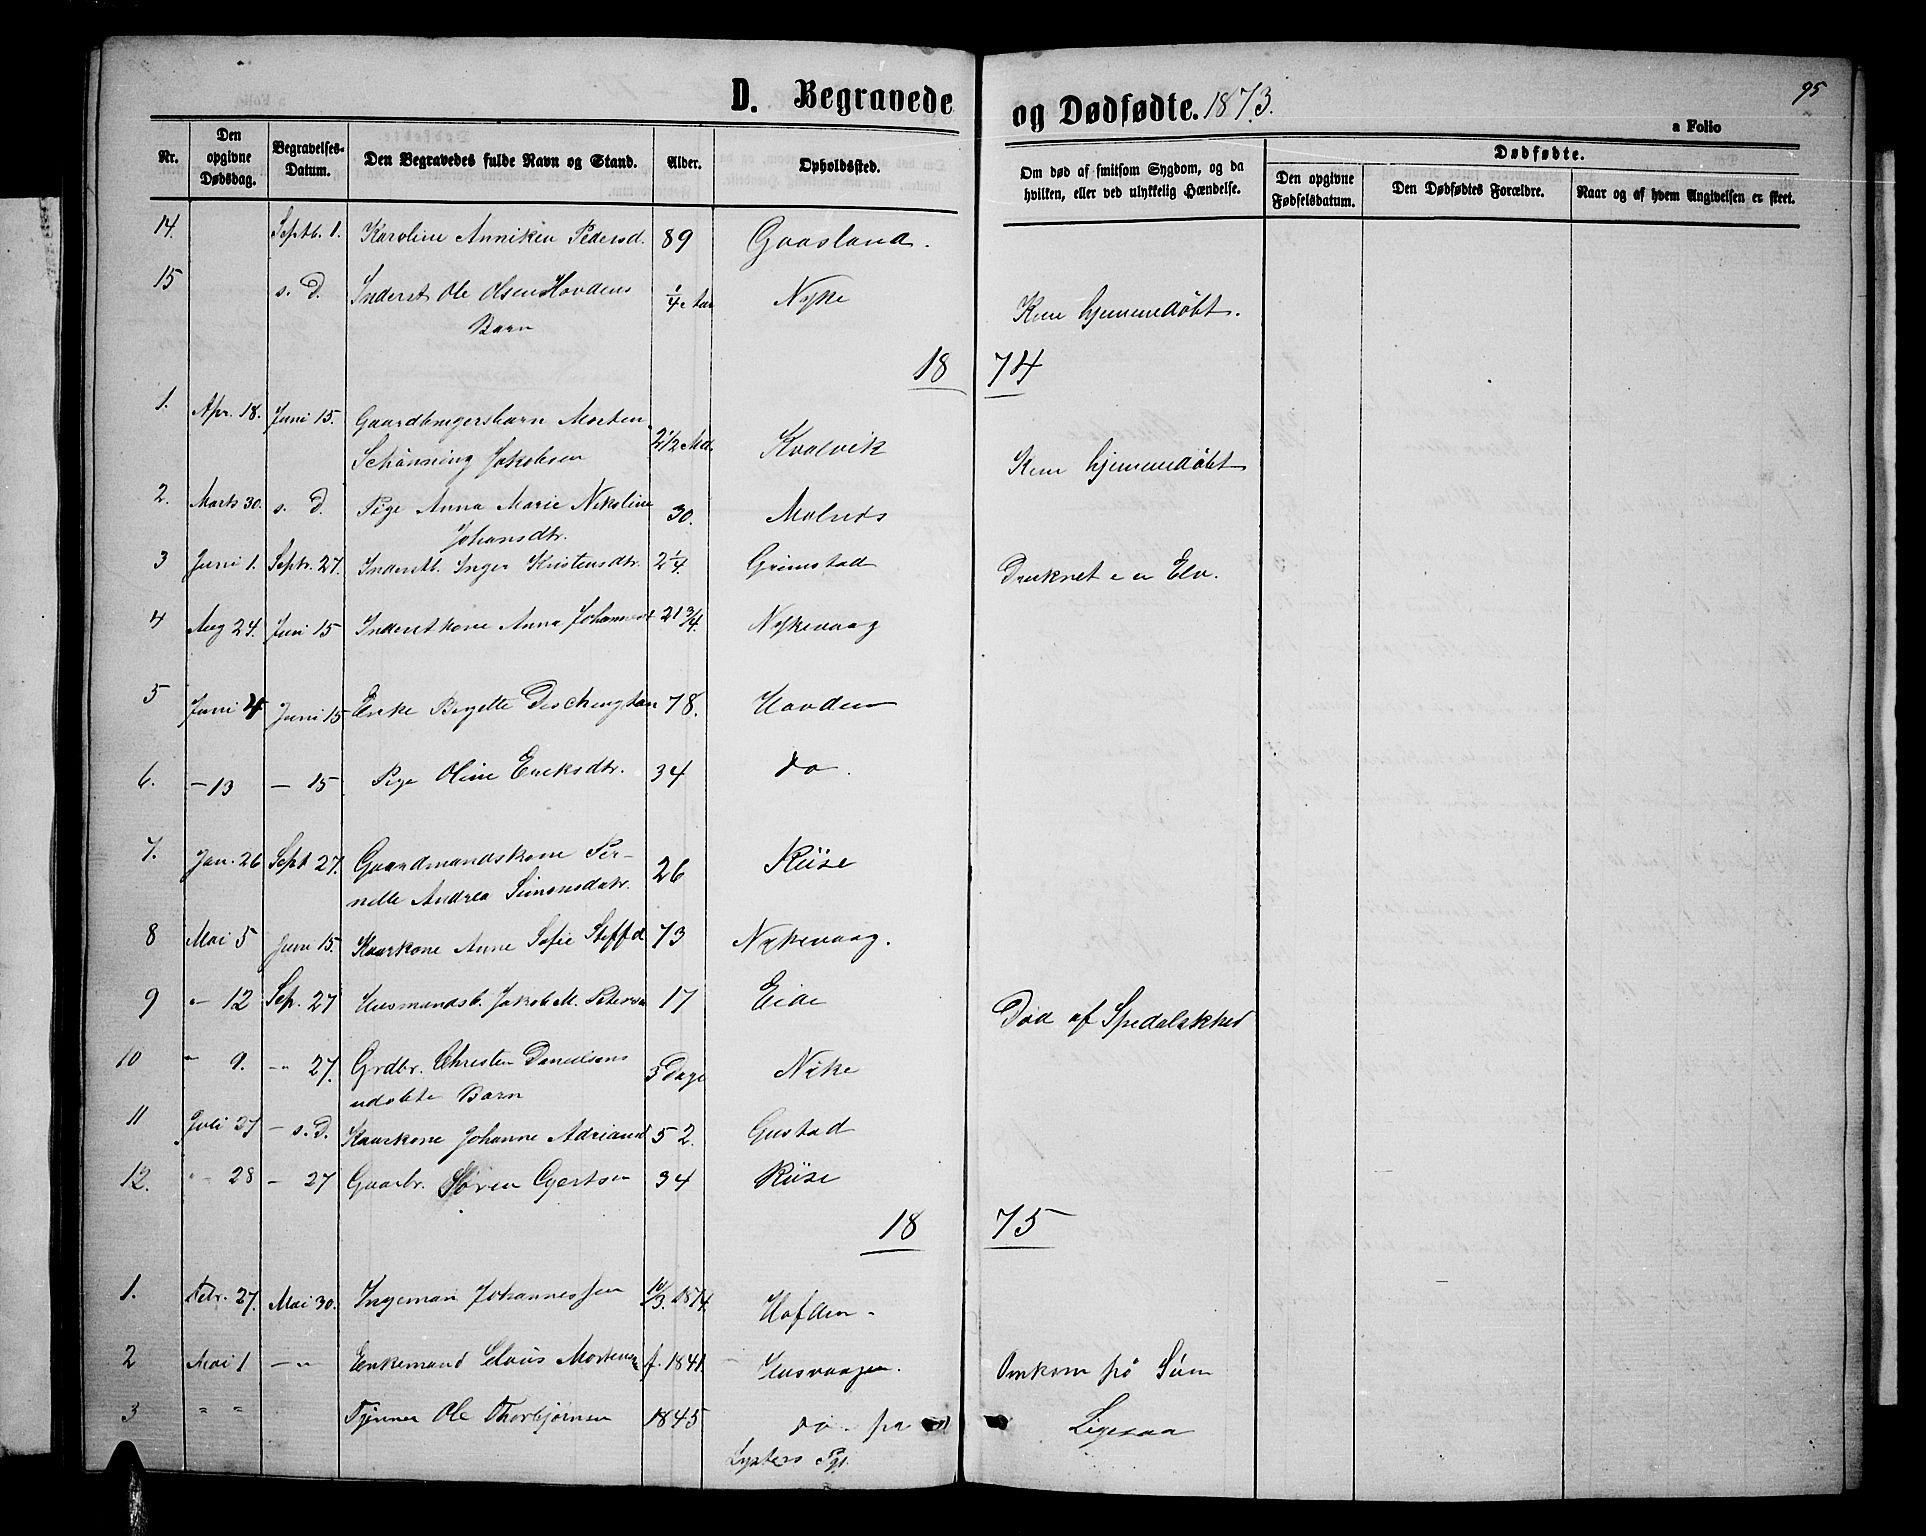 95
D. Begravede og Dødfødte. 1873.
a Folio
Nr.
Den opgivne Dødsdag.
Begravelses-Datum.
Den Begravedes fulde Navn og Stand.
Alder.
Opholdssted.
Om død af smitsom Sygdom, og da hvilken, eller ved ulykkelig Hændelse.
Dødfødte.
Den opgivne Fødselsdatum.
Den Dødfødtes Forældre.
Naar og af hvem Angivelsen er skeet.
14. Septb. 1. Karoline Anniken Pedersd. 89 Gaasland.
15 s. D. Inderst Ole Olsen Hovdens 1/4 Nyke
Barn Kun hjemmedøbt.
18 74
1. Apr. 18. Juni 15. Gaardbrugersbarn Morten
Schønning Jakobsen 2 1/2 Md. Kvalvik Kun hjemmedøbt
2. Marts 30. s. D. Pige Anna Marie Nikoline 30. Malnes
Johansdtr.
3 Juni 1. Septr. 27. Inderstb. Inger Kristensdtr. 2 1/4. Grimstad Druknet i en Elv.
4 Aug 24. Juni 15 Inderstkone Anna Johannesd 21 3/4. Nykevaag
5 Juni 4 Juni 15 Enke Birgitte 78. Hovden
6. – 13 – 15 Pige Oline Eriksdtr. 34 do.
7. Jan. 26 Sept 27. Gaardmandskone Per-
nelle Andrea Simonsdatr. 26 Riise
8 Mai 5 Juni 15. Kaarkone Anne Sofie Steffd 73 Nykevaag.
9 " 12 Sep. 27 Husmandsb. Jakob M. Petersen 17 Eide Død af Spedalskhed
10 " 9. – " 27. Grdbr. Christen Danielsens 5 Dage Nike
udøbte Barn
11 Juli 27 – s. D. Kaarkone Johanne Adriand 52. Gustad
12. " 28 – 27 Gaarbr. Søren Gjertsen 34 Riise
18 75
1. Febr. 27. Mai 30. Ingeman Johannessen 10/3. 1874. Hofden
2 Mai 1 – " Enkemand Claus Mortensen f. 1841. Husvaagen. Omkom på Søen
3 " " Tjener Ole Thorbjørnsen 1845 do. fra Ligesaa
Lysters Pgl.